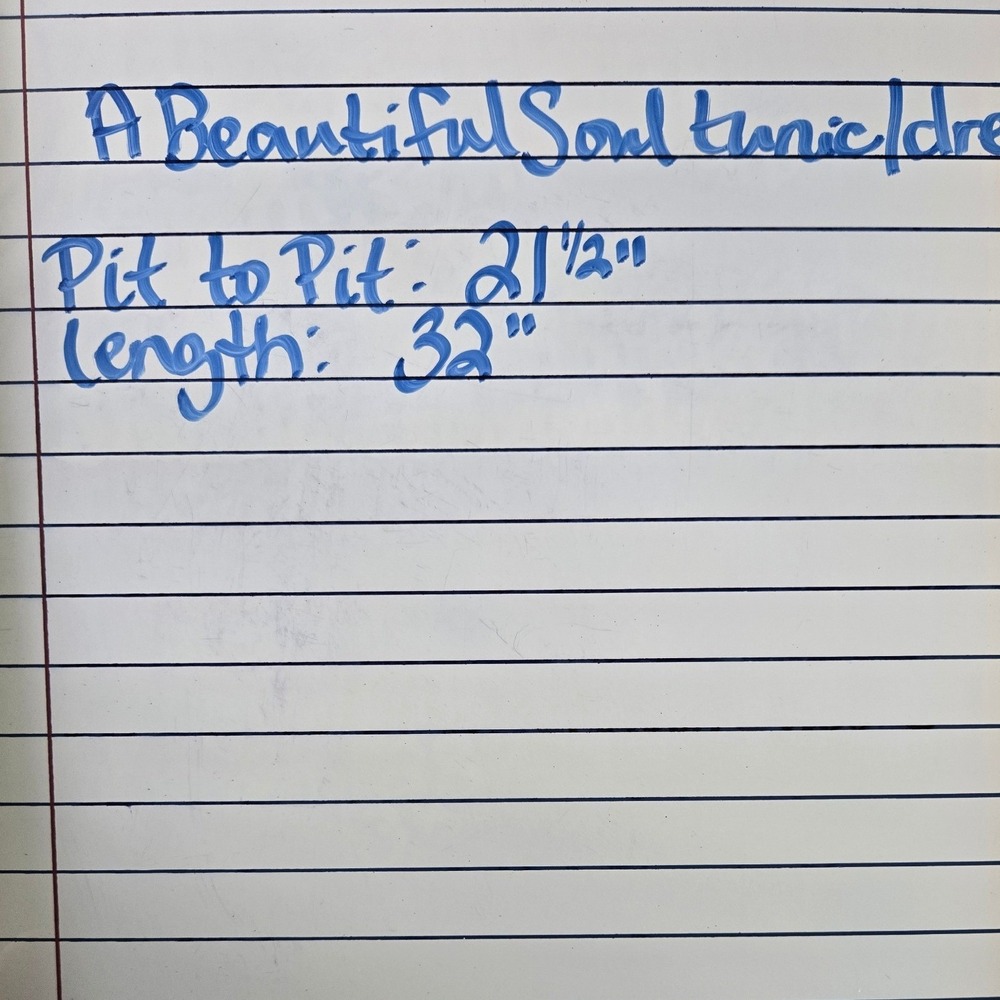 A Beautiful Soul tunic/dre
Pit to Pit: 21 1/2"
length: 32"